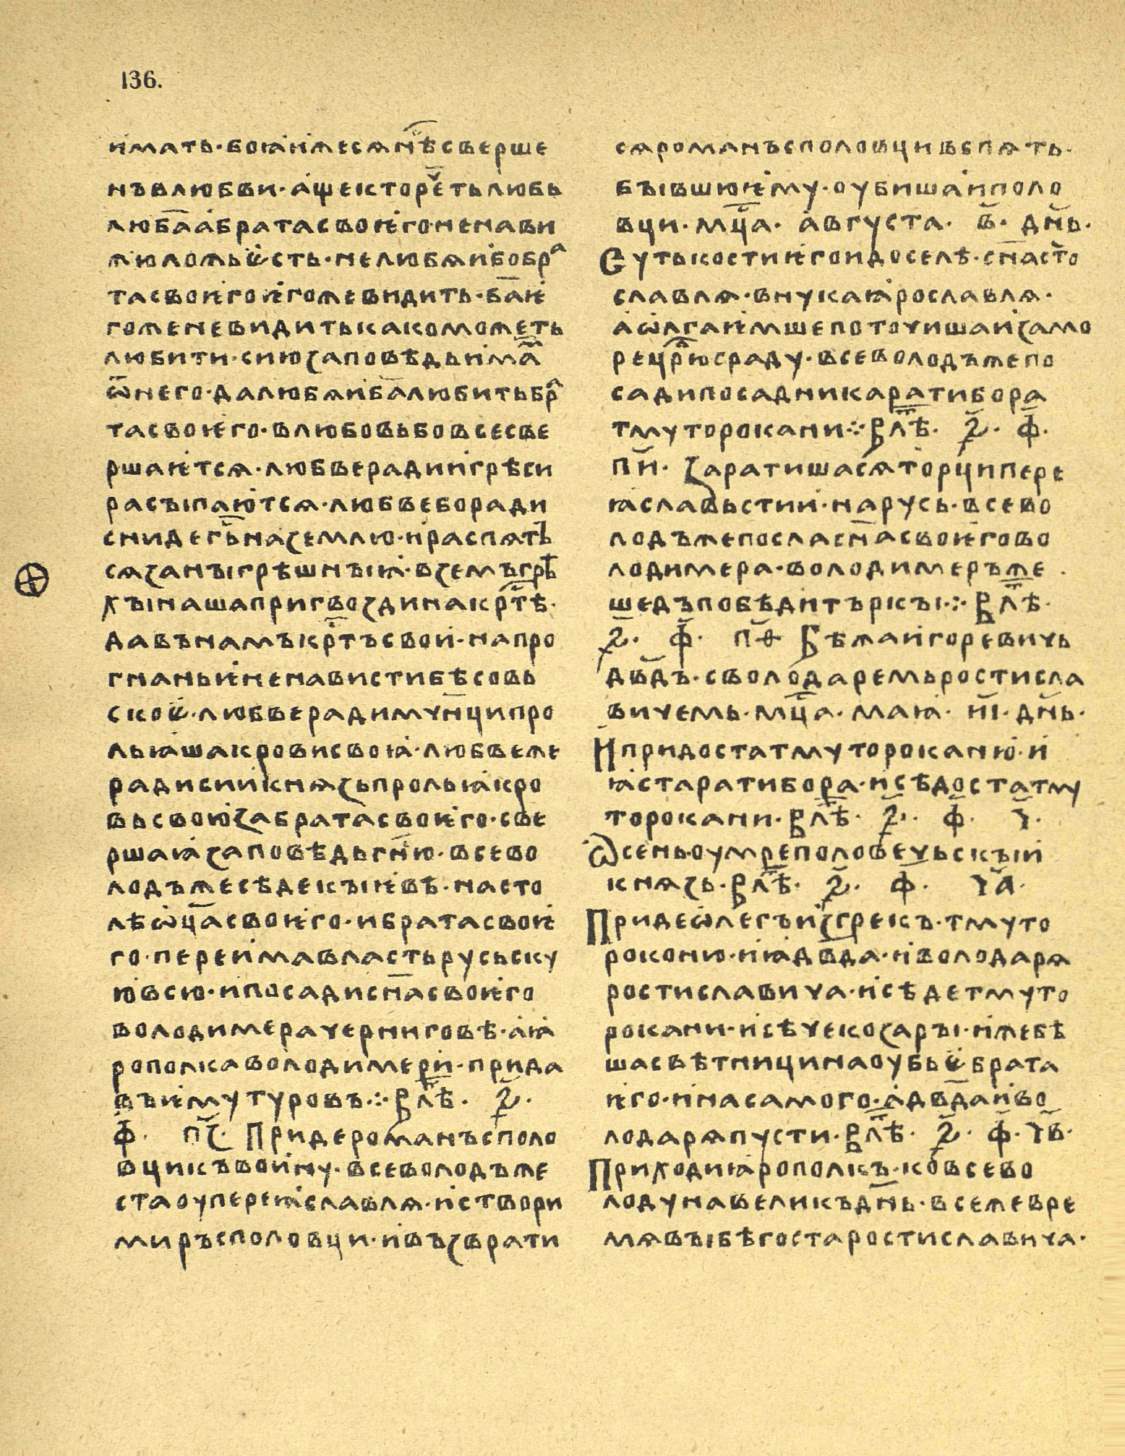 136.
имать · боꙗзнꙗ есѧ нѣ сверше
нъ в любви · аще кто рⷱ҇еть любь
люблⷶ а брата своѥго ненави
жю ложь ѥсть · не любѧи бо брⷶ
та своѥго ѥгоже видить · ба҃ ѥ
гоже не видить како можеть
любити · сию заповѣдь имаⷨ
ѿ него · да любѧи ба҃ любить брⷶ
та своѥго · в любовь бо все све
ршаѥтсѧ · любве ради и грѣси
расъıпаютсѧ · любве бо ради
сниде гь҃ на землю · и распѧтъ
сѧ за нъı грѣшнъıꙗ · вземъ грѣ
хъı наша пригвозди на крⷭ҇тѣ ·
давъ намъ крⷭ҇тъ свои · на про
гнаньѥ ненависти бѣсовь
скоѥ · любве ради мч҃нци про
льꙗша крови своꙗ · любве же
ради сии кнѧзь пролья кро
вь свою за брата своѥго · све
ршаꙗ заповѣдь гн҃ю · всево
лодъ же сѣде къıѥвѣ · на сто
лѣ ѡц҃а своѥго · и брата своѥ
го · переима власть русьску
ю всю · и посади сн҃а своѥго
володимера чернигове · а ꙗ
рополка володимери · прида
въ ѥму туровъ ⁘ в лⷮ҇ѣ · ҂ѕ҃ ·
ф҃ · п҃з Приде романъ с поло
вци къ воину · всеволодъ же
ста оу переꙗславлѧ · и створи
миръ с половци · и възврати
сѧ романъ с половци вспѧть ·
бъıвшю ѥму · оубиша и поло
вци · мц҃а · августа · в҃ · дн҃ь ·
Суть кости ѥго и доселѣ · сн҃а ст҃о
славлѧ · внука ꙗрославлѧ ·
а ѡлга ѥмше поточиша и за мо
ре цр҃юграду · всеволодъ же по
сади посадника ратибора
тмуторокани ⁘ в лⷮ҇ѣ · ҂ѕ҃ · ф҃ ·
п҃и · Заратишасѧ торци пере
ꙗславьстии · на русь · всево
лодъ же посла сн҃а своѥго во
лодимера · володимеръ же
шедъ побѣди търкъı ⁘ в лⷮ҇ѣ ·
҂ѕ҃ · ф҃ · п҃ѳ Бѣжа игоревичь
дв҃дъ · с володаремь ростисла
вичемь · мц҃а · маꙗ · и҃і · дн҃ь ·
И придоста тмутороканю · и
ꙗста ратибора · и сѣдоста тму
торокани · в лⷮ҇ѣ · ҂ѕ҃ · ф҃ · ч҃ ·
Ѡсень оумре половечьскъıи
кнѧзь · в лⷮ҇ѣ · ҂ѕ҃ · ф҃ · ч҃а ·
Приде ѡлегъ из грекъ · тмуто
рокони · и ꙗ дв҃да · и володарѧ
ростиславича · и сѣде тмуто
рокани · и сѣче козаръı · иже бѣ
ша свѣтници на оубьѥ брата
ѥго · и на самого · а дв҃да и во
лодарѧ пусти · в лⷮ҇ѣ · ҂ѕ҃ · ф҃ · ч҃в ·
Приходи ꙗрополкъ · ко всево
лоду на великъ дн҃ь · в се же вре
мѧ въıбѣгоста ростиславича ·